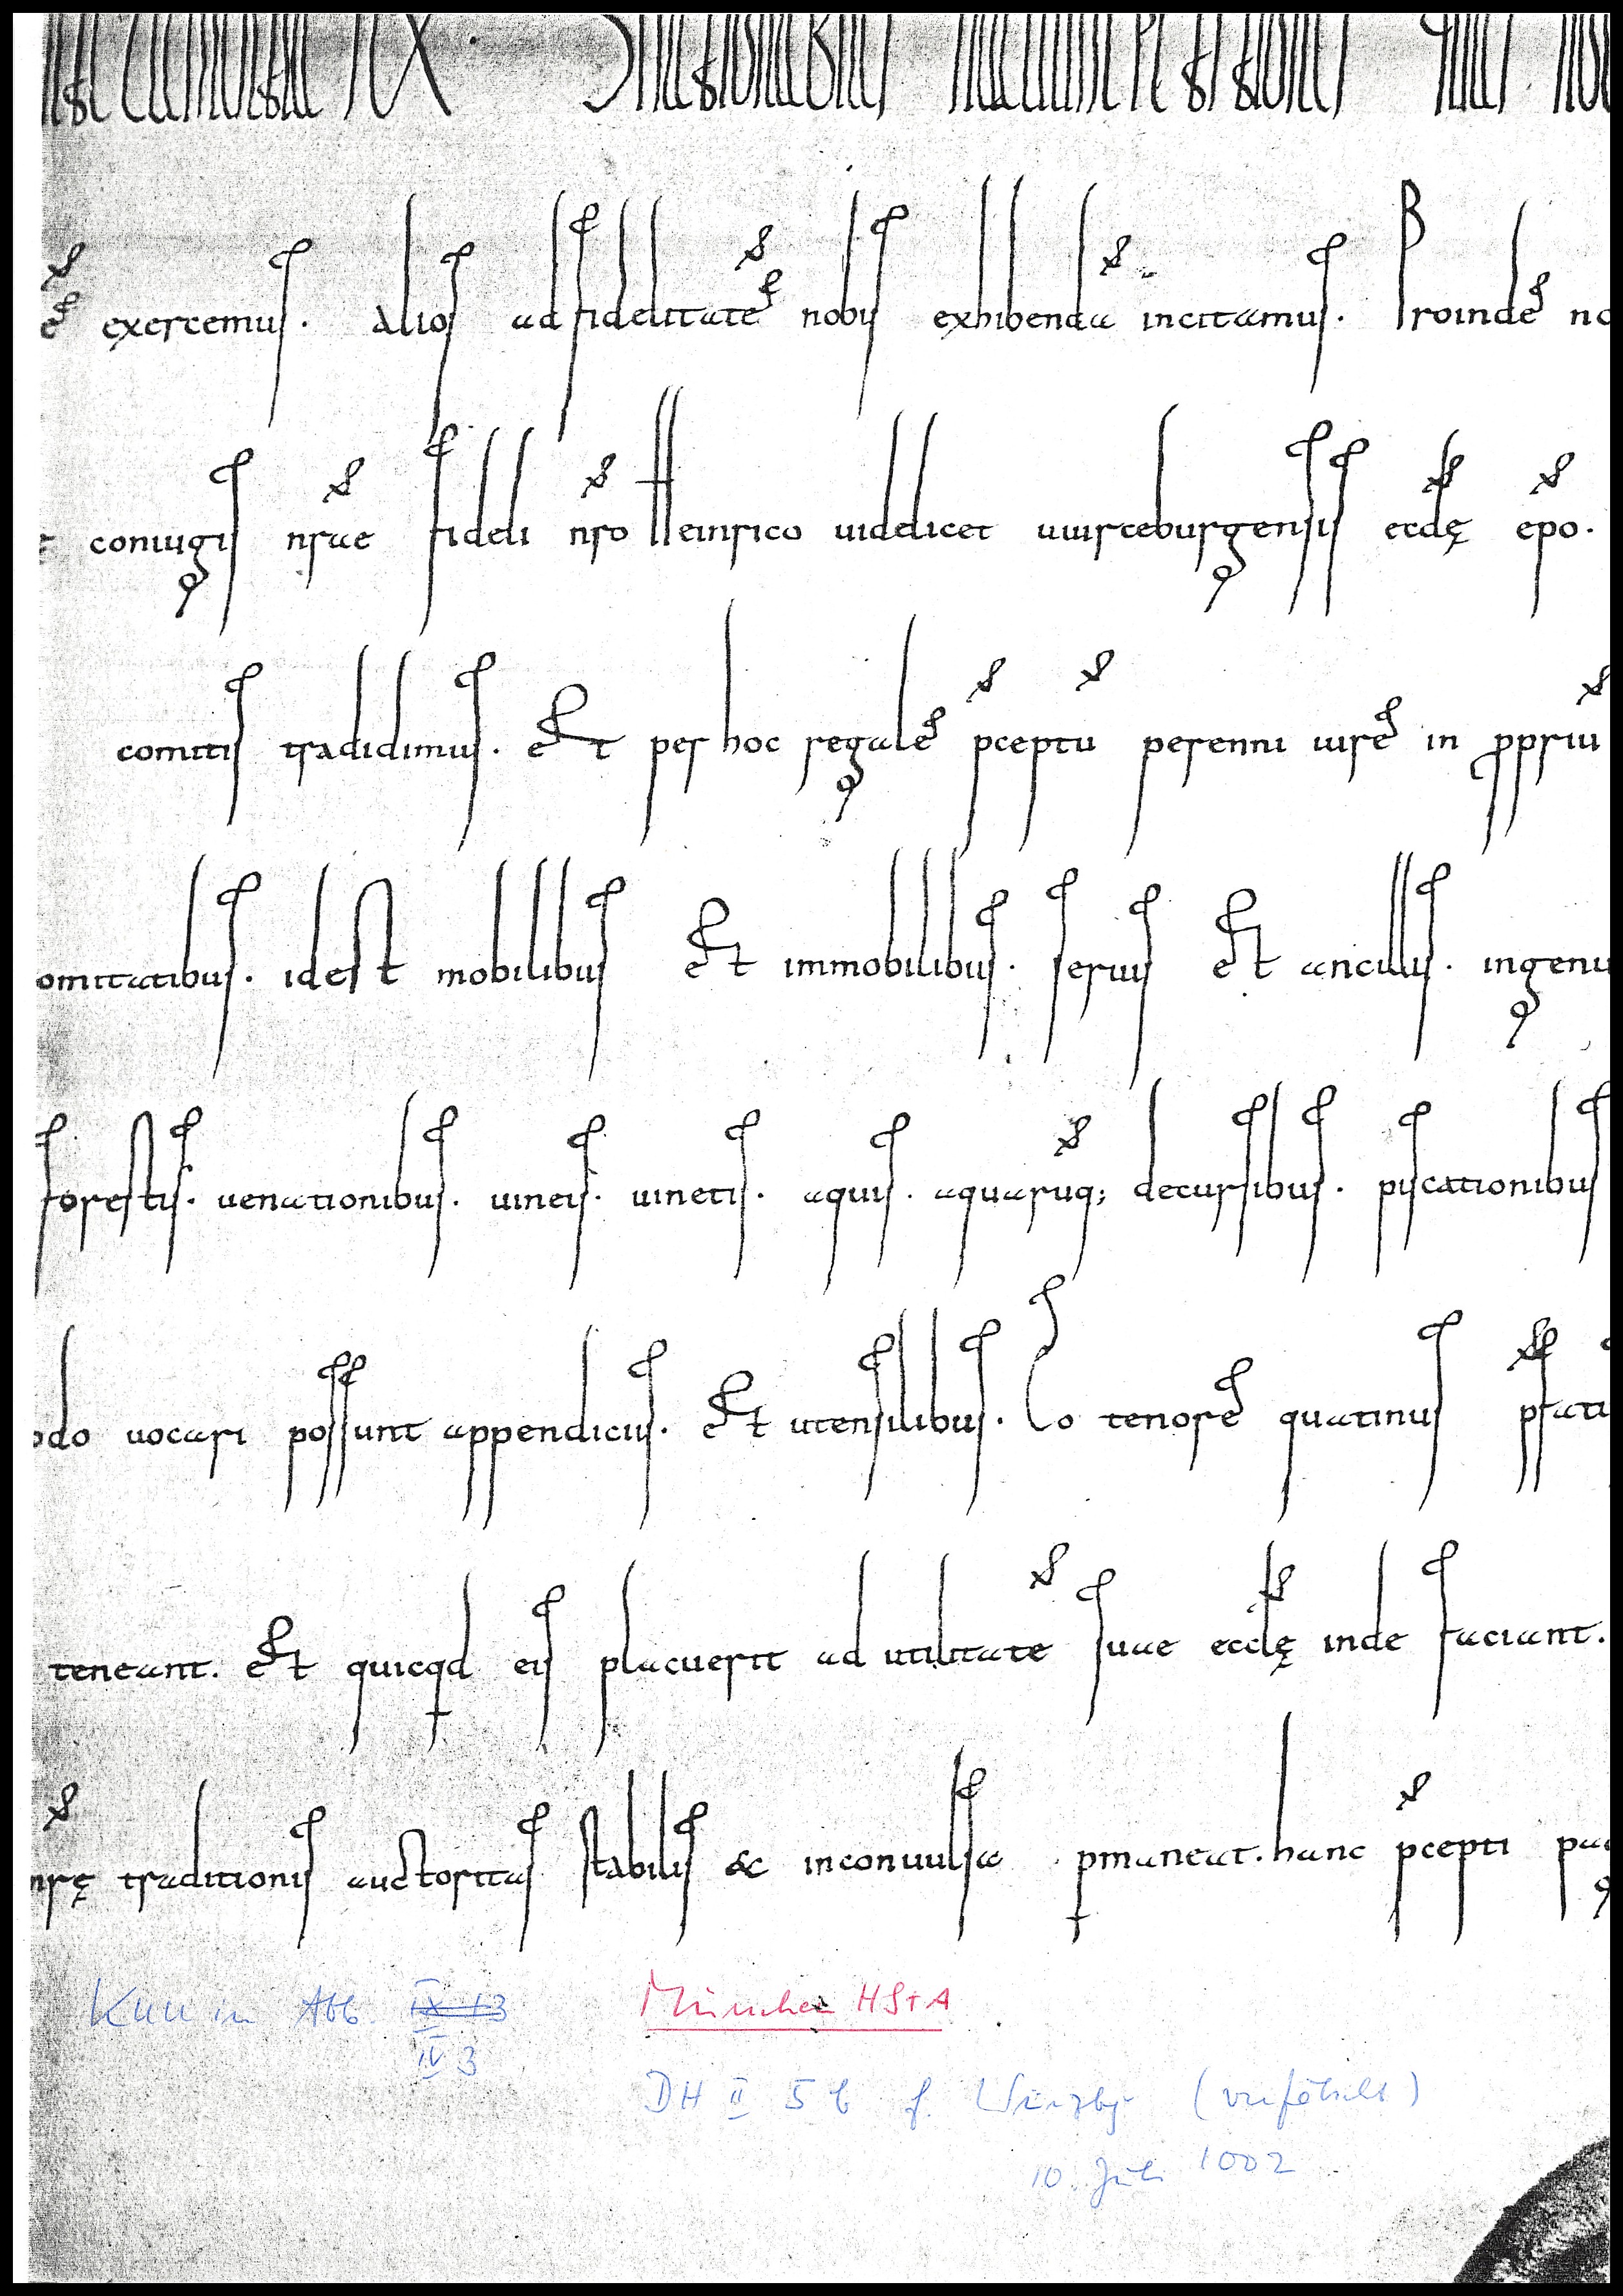 exercemus. Alios ad fidelitatē nobis exhibendā incitamus. Proinde no
coniugis nr̄ae fideli nr̄o Heinrico uidelicet uuirceburgensis eccl̄ę ep̄o.
comitis tradidimus. Et per hoc regale p̄ceptū perenni iure in ꝓpriū
omitatibus. idest mobilibus Et immobilibus. seruis Et ancillis. ingenu
forestis. uenationibus. uineis. uinetis. aquis. aquarūq; decursibus. piscationibus
odo uocari possunt appendiciis. Et utensilibus. Eo tenore quatinus p̄fati
teneant. Et quicqd eis placuerit ad utilitatē suae eccl̄ę inde faciant.
nr̄ę traditionis auctoritas stabilis &c inconuulsa ꝑmaneat. hanc p̄cepti pa
Abb IX 13
IV 3
München HStA
DH II 5 b f. Würzbg (verfälscht)
10. Juli 1002